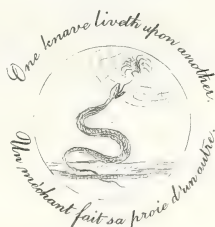 One knave liveth upon another.
Un méchant fait sa proie d'un autre